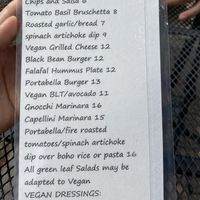 Chips and Salsa 8
Tomato Basil Bruschetta 8
Roasted garlic/bread 7
spinach artichoke dip 9
Vegan Grilled Cheese 12
Black Bean Burger 12
Falafal Hummus Plate 12
Portabella Burger 13
Vegan BLT/avocado 11
Gnocchi Marinara 16
Capellini Marinara 15
Portabella/fire roasted
tomatoes/spinach artichoke
dip over boho rice or pasta 16
All green leaf Salads may be
adapted to Vegan
VEGAN DRESSINGS: